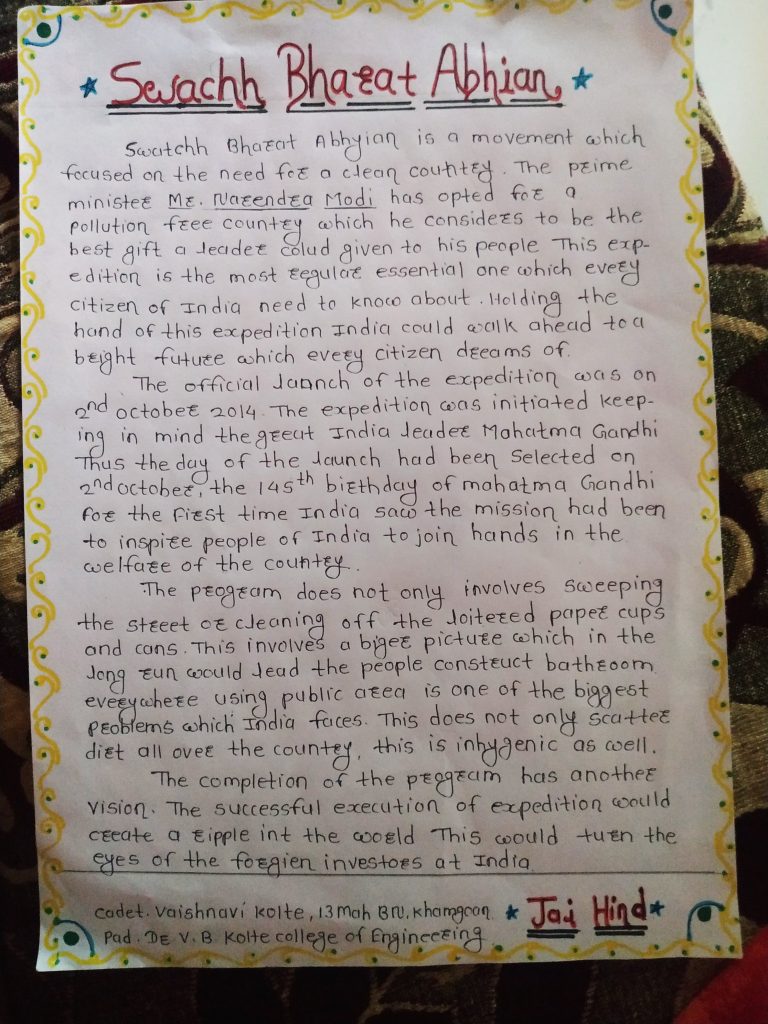 Swachh Bharat Abhian
Swatchh Bharat Abhyian is a movement which
focused on the need for a clean country. The prime
minister Mr. Narendra Modi has opted for a
pollution free country which he considers to be the
best gift a leader colud given to his people This exp-
edition is the most regular essential one which every
citizen of India need to know about. Holding the
hand of this expedition India could walk ahead to a
bright future which every citizen dreams of.
The official launch of the expedition was on
2nd october 2014. The expedition was initiated keep-
ing in mind the great India leader Mahatma Gandhi
Thus the day of the launch had been selected on
2nd october, the 145th birthday of mahatma Gandhi
for the first time India saw the mission had been
to inspire people of India to join hands in the
welfare of the country.
The program does not only involves sweeping
the street or cleaning off the loitered paper cups
and cans. This involves a biger picture which in the
long run would lead the people construct bathroom
everywhere using public area is one of the biggest
problems which India faces. This does not only scatter
dirt all over the country, this is inhygenic as well.
The completion of the program has another
vision. The successful execution of expedition would
create a ripple int the world This would turn the
eyes of the forgien investors at India
cadet. Vaishnavi Kolte, 13 Mah BN. Khamgaon. Jai Hind
Pad. Dr V. B. Kolte college of Engineering